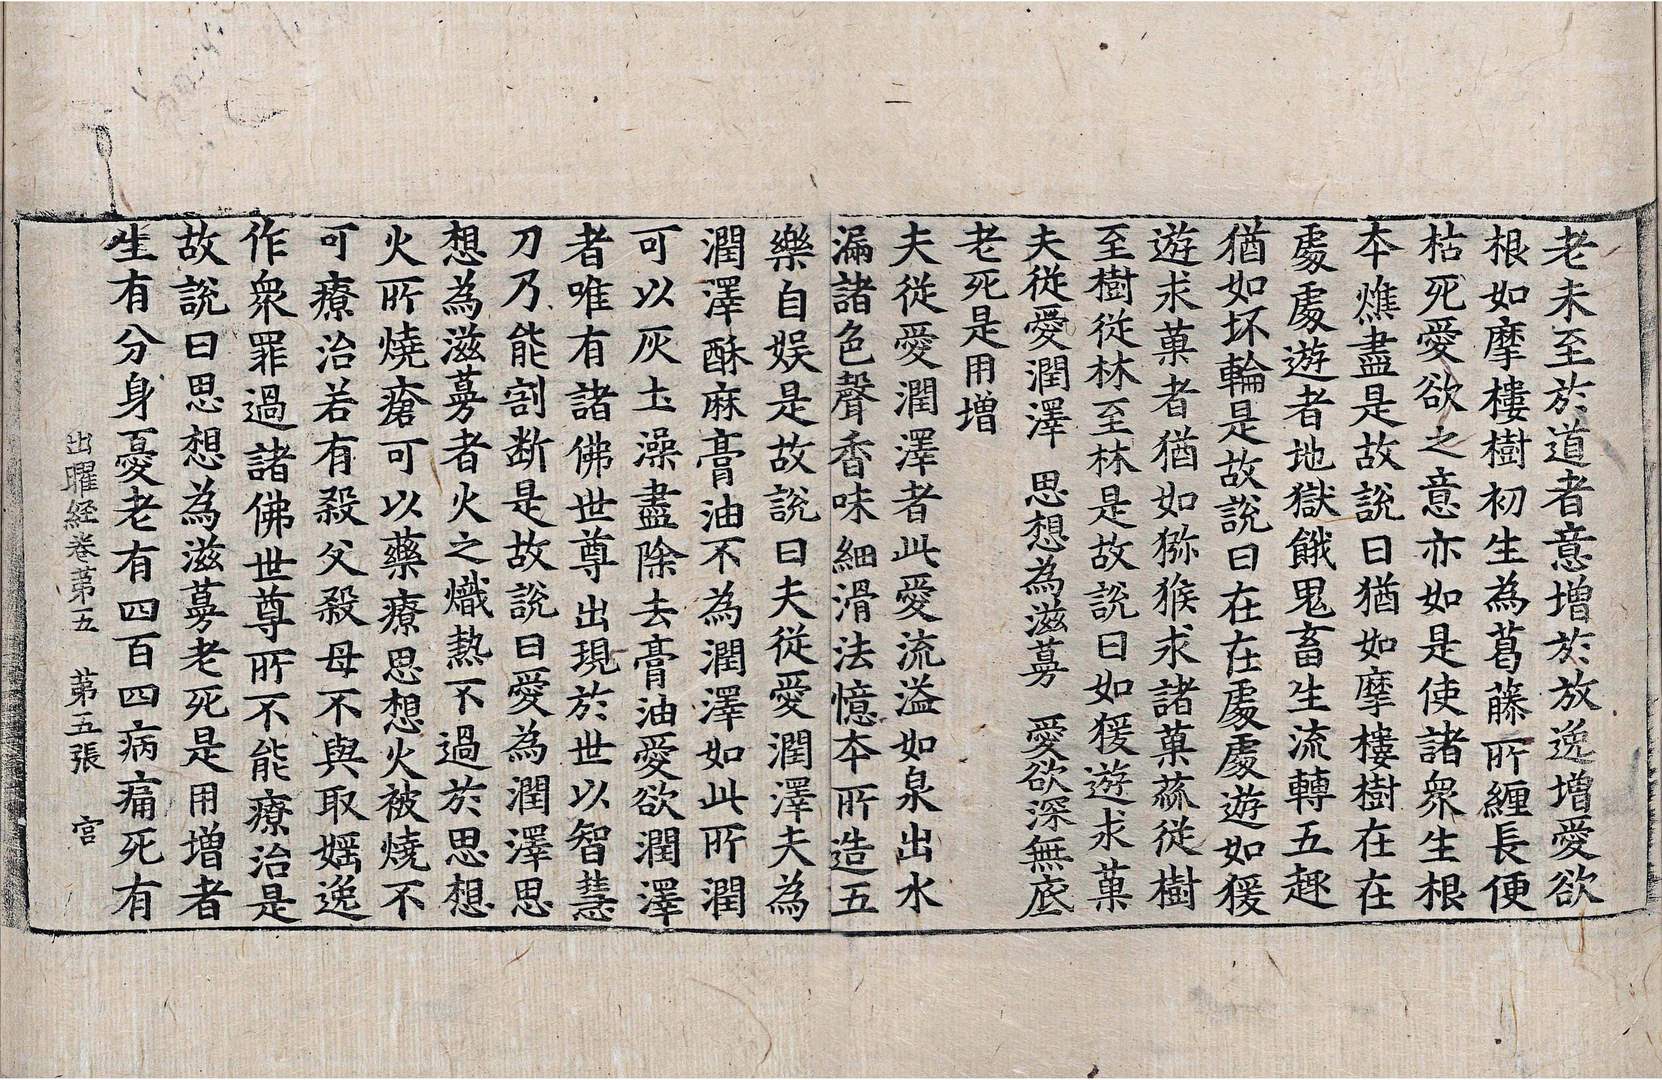 老未至於道者意增於放逸增愛欲
根如摩樓樹初生為葛藤所纏長便
枯死愛欲之意亦如是使諸衆生根
本燋盡是故說曰猶如摩樓樹在在
處處遊者地獄餓鬼畜生流轉五趣
猶如坏輪是故說曰在在處處遊如猨
遊求菓者猶如獼猴求諸菓蓏從樹
至樹從林至林是故說曰如猨遊求菓
夫從愛潤澤 思想為滋蔓 愛欲深無底
老死是用增
夫從愛潤澤者此愛流溢如泉出水
漏諸色聲香味細滑法憶本所造五
樂自娛是故說曰夫從愛潤澤夫為
潤澤酥麻膏油不為潤澤如此所潤
可以灰土澡盡除去膏油愛欲潤澤
者唯有諸佛世尊出現於世以智慧
刀乃能割断是故說曰愛為潤澤思
想為滋蔓者火之熾熱不過於思想
火所燒瘡可以藥療思想火被燒不
可療治若有殺父殺母不與取婬逸
作衆罪過諸佛世尊所不能療治是
故說曰思想為滋蔓老死是用增者
生有分身憂老有四百四病痛死有
出曜経卷苐五 苐五張 宮
二